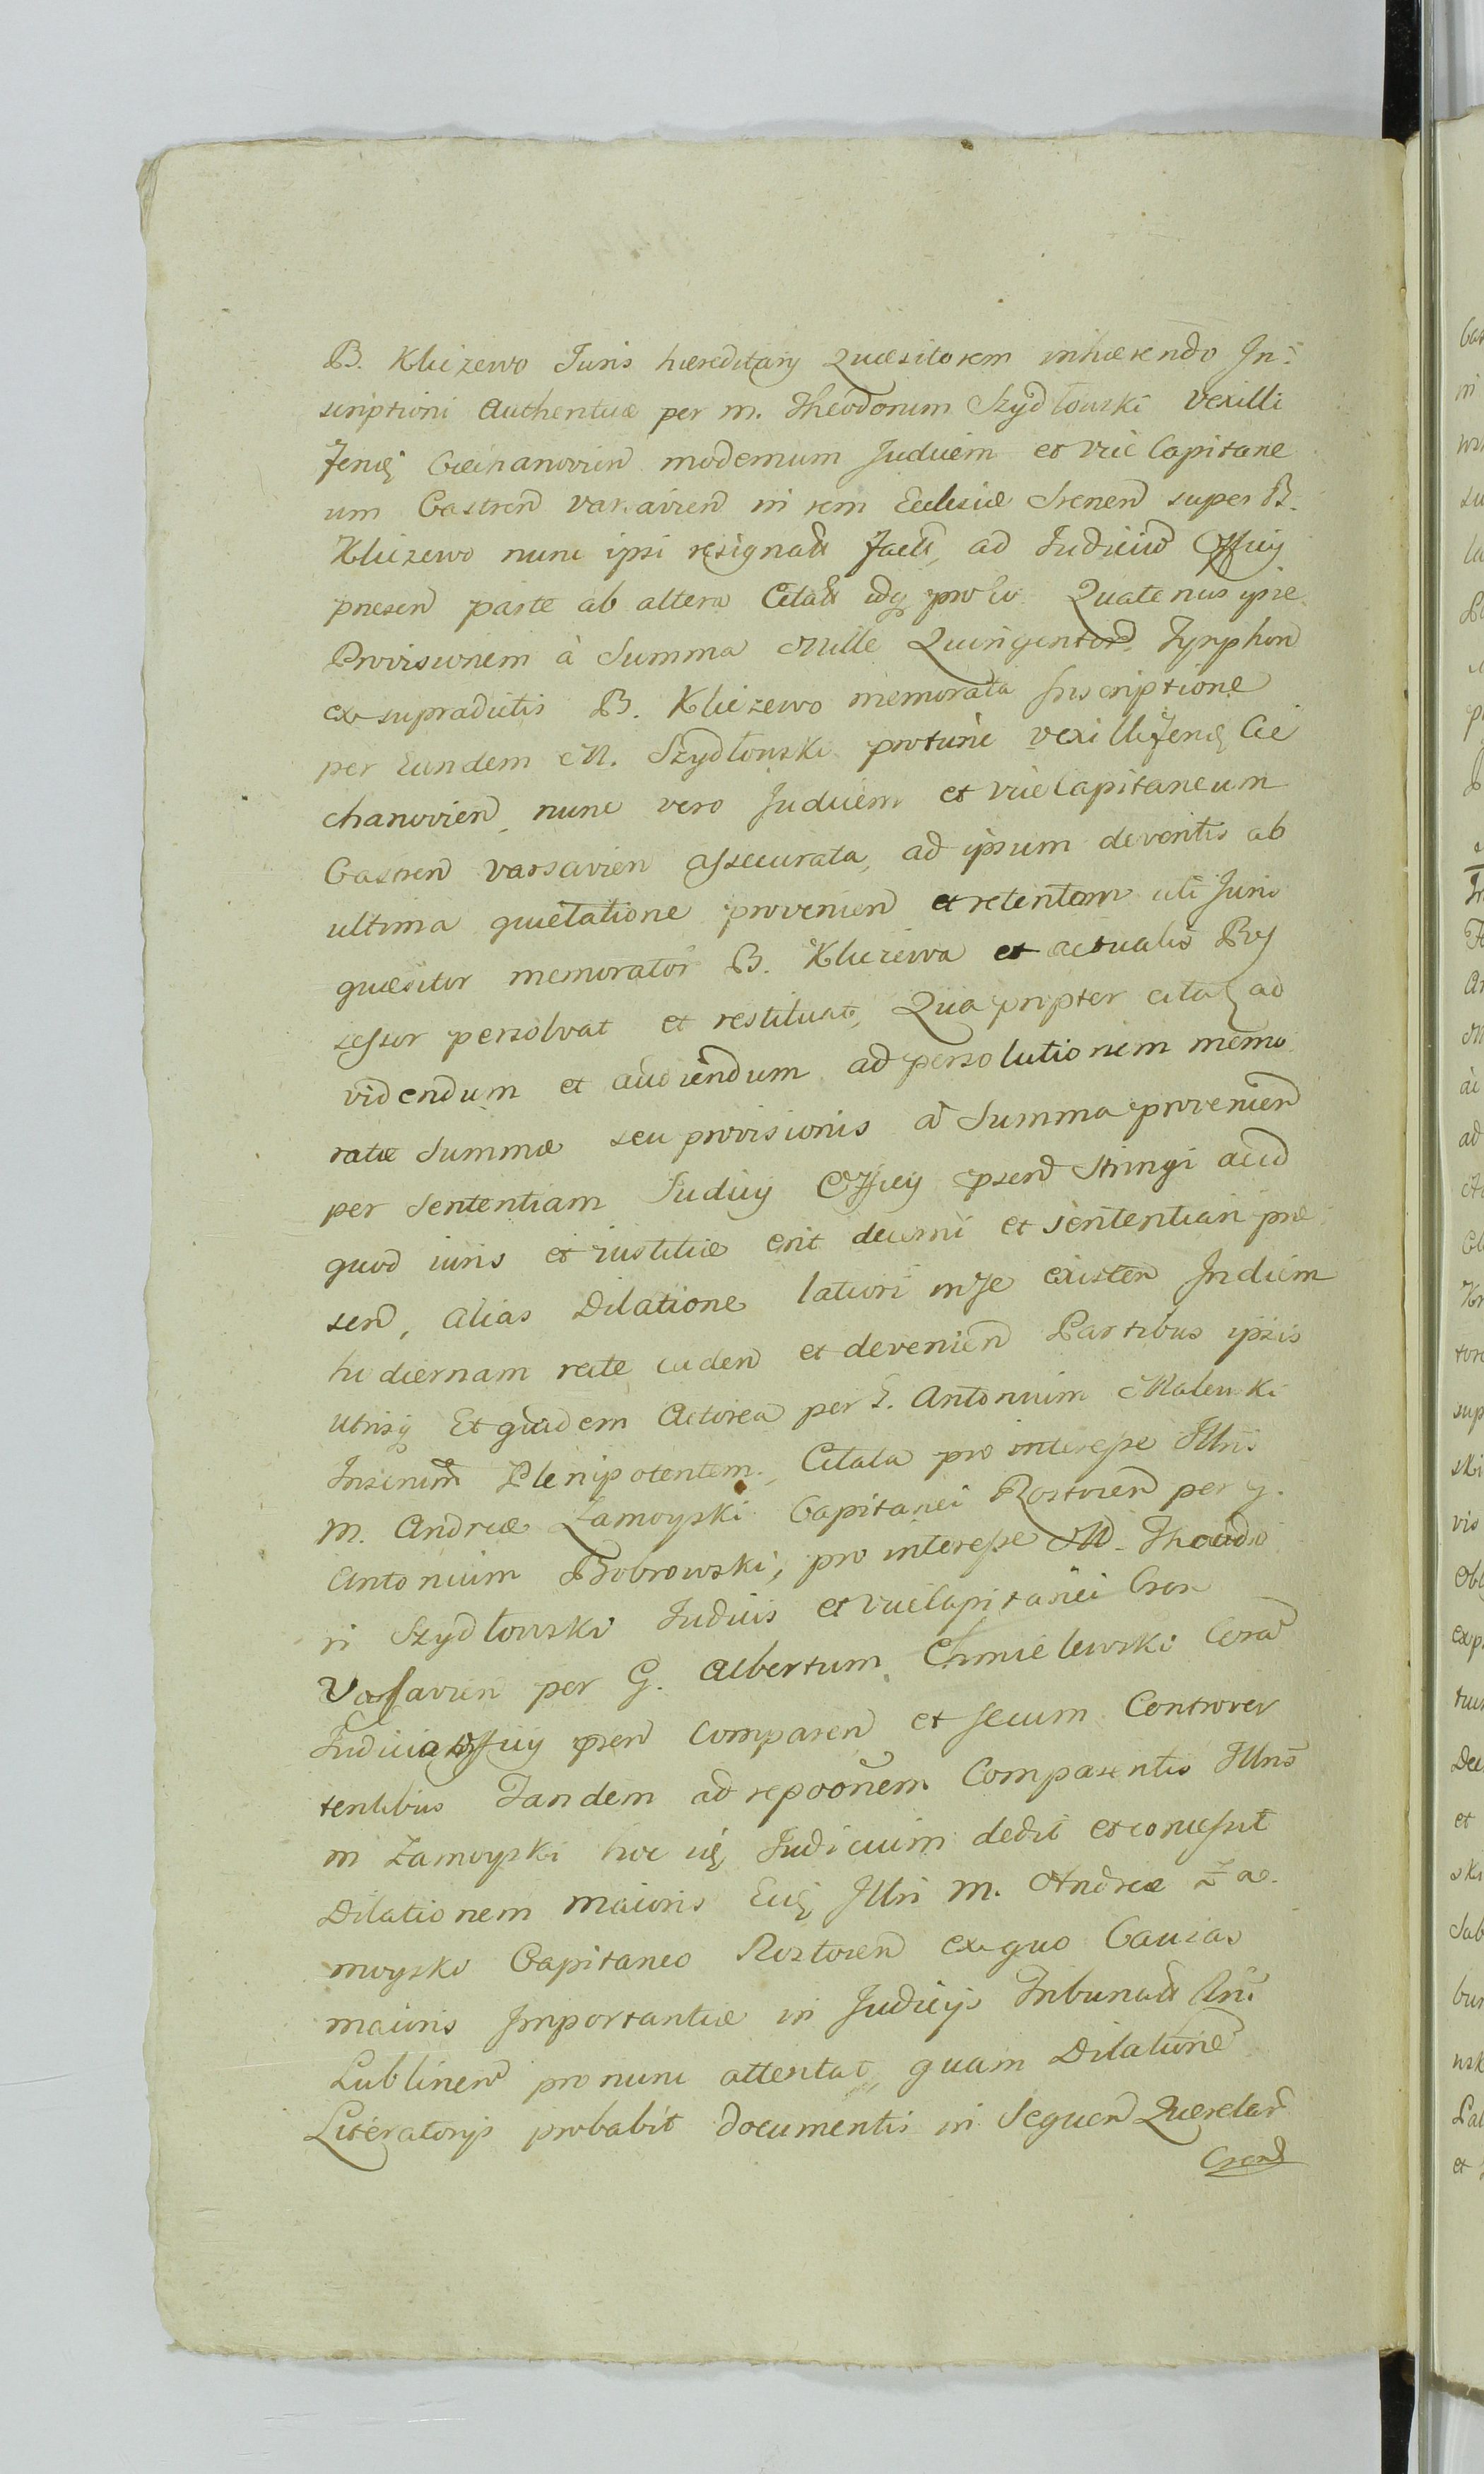 B. Kliczewo Juris hæreditarij Quæsitorem inhærendo In-
scriptioni Authenticæ per M. Theodorum Szydłowski Vexilli
ferū Ciechanovien modernum Judicem et Vice Capitane
um Castren Varsavien in rem Ecclesiæ Srenen super B.
Kliczewo nunc ipsi resignatt factt, ad Judiciū Officij
præsen parte ab altera Citatt idq pro eo Quatenus ipse
Provisionem à Summa Mille Quingentor Tynphon
ex supradictis B. Kliczewo memorata Inscriptione
per Eundem M. Szydłowski protunc vexilliferū Cie
chanovien, nunc vero Judicem et viceCapitaneum
Castren Varsavien assecurata, ad ipsum deventis ab
ultima quietatione provenien et retentam uti Juris
quæsitor memorator B. Kliczewa et actualis Pos
sessor persolvat et restituat, Qua propter citat ad
videndum et audiendum ad persolutionem memo
ratæ Summæ seu provisionis à Summa provenien
per Sententiam Judicij Officij psen Stringi acid
quod iuris et iustitiæ erit decerni et sententiari præ
sen, alias Dilatione latiori in se existen In diem
hodiernam rite caden et devenien Partibus ipsis
utrisq Et quidem Actorea per G. Antonium Malewski
Inserium Plenipotentem, Citata pro interesse Illris
M. Andreæ Zamoyski Capitanei Rostocen per G.
Antonium Bobrowski, pro interesse M. Theodo
ri Szydłowski Judicis et viceCapitanei Cran
Varsavien per G. Albertum Chmielewski Corā
Judicio Officij psen Comparen et secum Controver
tentibus Tandem ad repoonem Comparentis Illris
M Zamoyski hoc idē Judicium dedit et concessit
Dilationem maioris Eidē Illri M. Andreæ Za-
moyski Capitaneo Rostocen ex quo Causas
maioris Importantiæ in Judicijs Tribunatt Rni
Lublinen pro nunc attentat, quam Dilationē
Literatorijs probabit documentis in Sequen Querelar
Cran